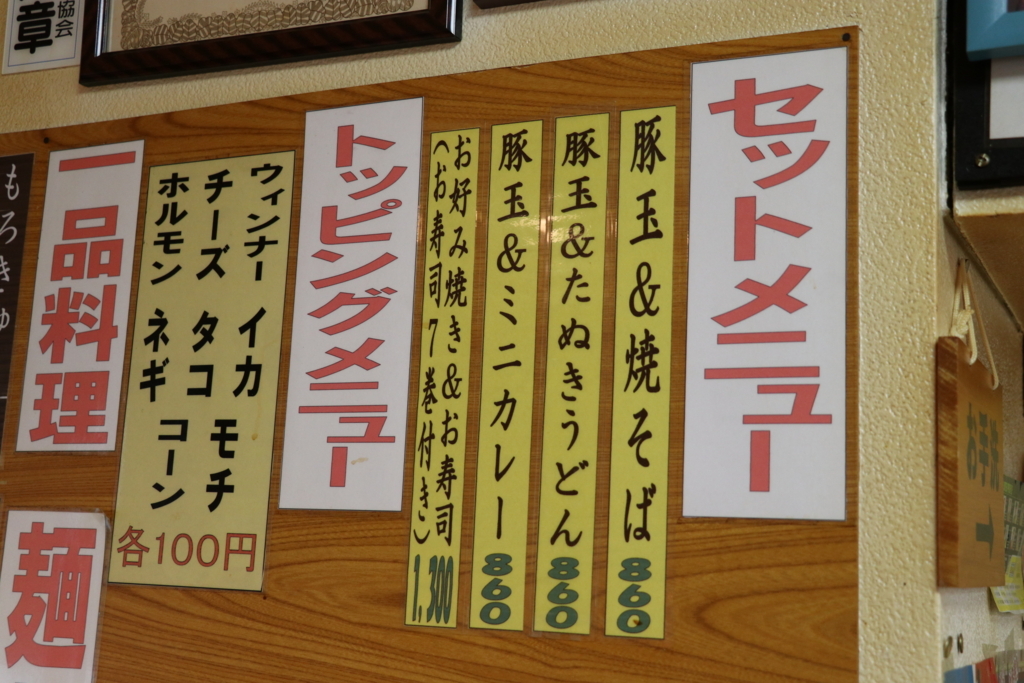 セットメニュー
豚玉&焼そば 860
豚玉&たぬきうどん 860
豚玉&ミニカレー 860
お好み焼き&お寿司
(お寿司7巻付き) 1,300
トッピングメニュー
ウィンナー イカ モチ
チーズ タコ コーン
ホルモン ネギ
各100円
一品料理
麺
もろきゅ
協会
章
お手洗
→